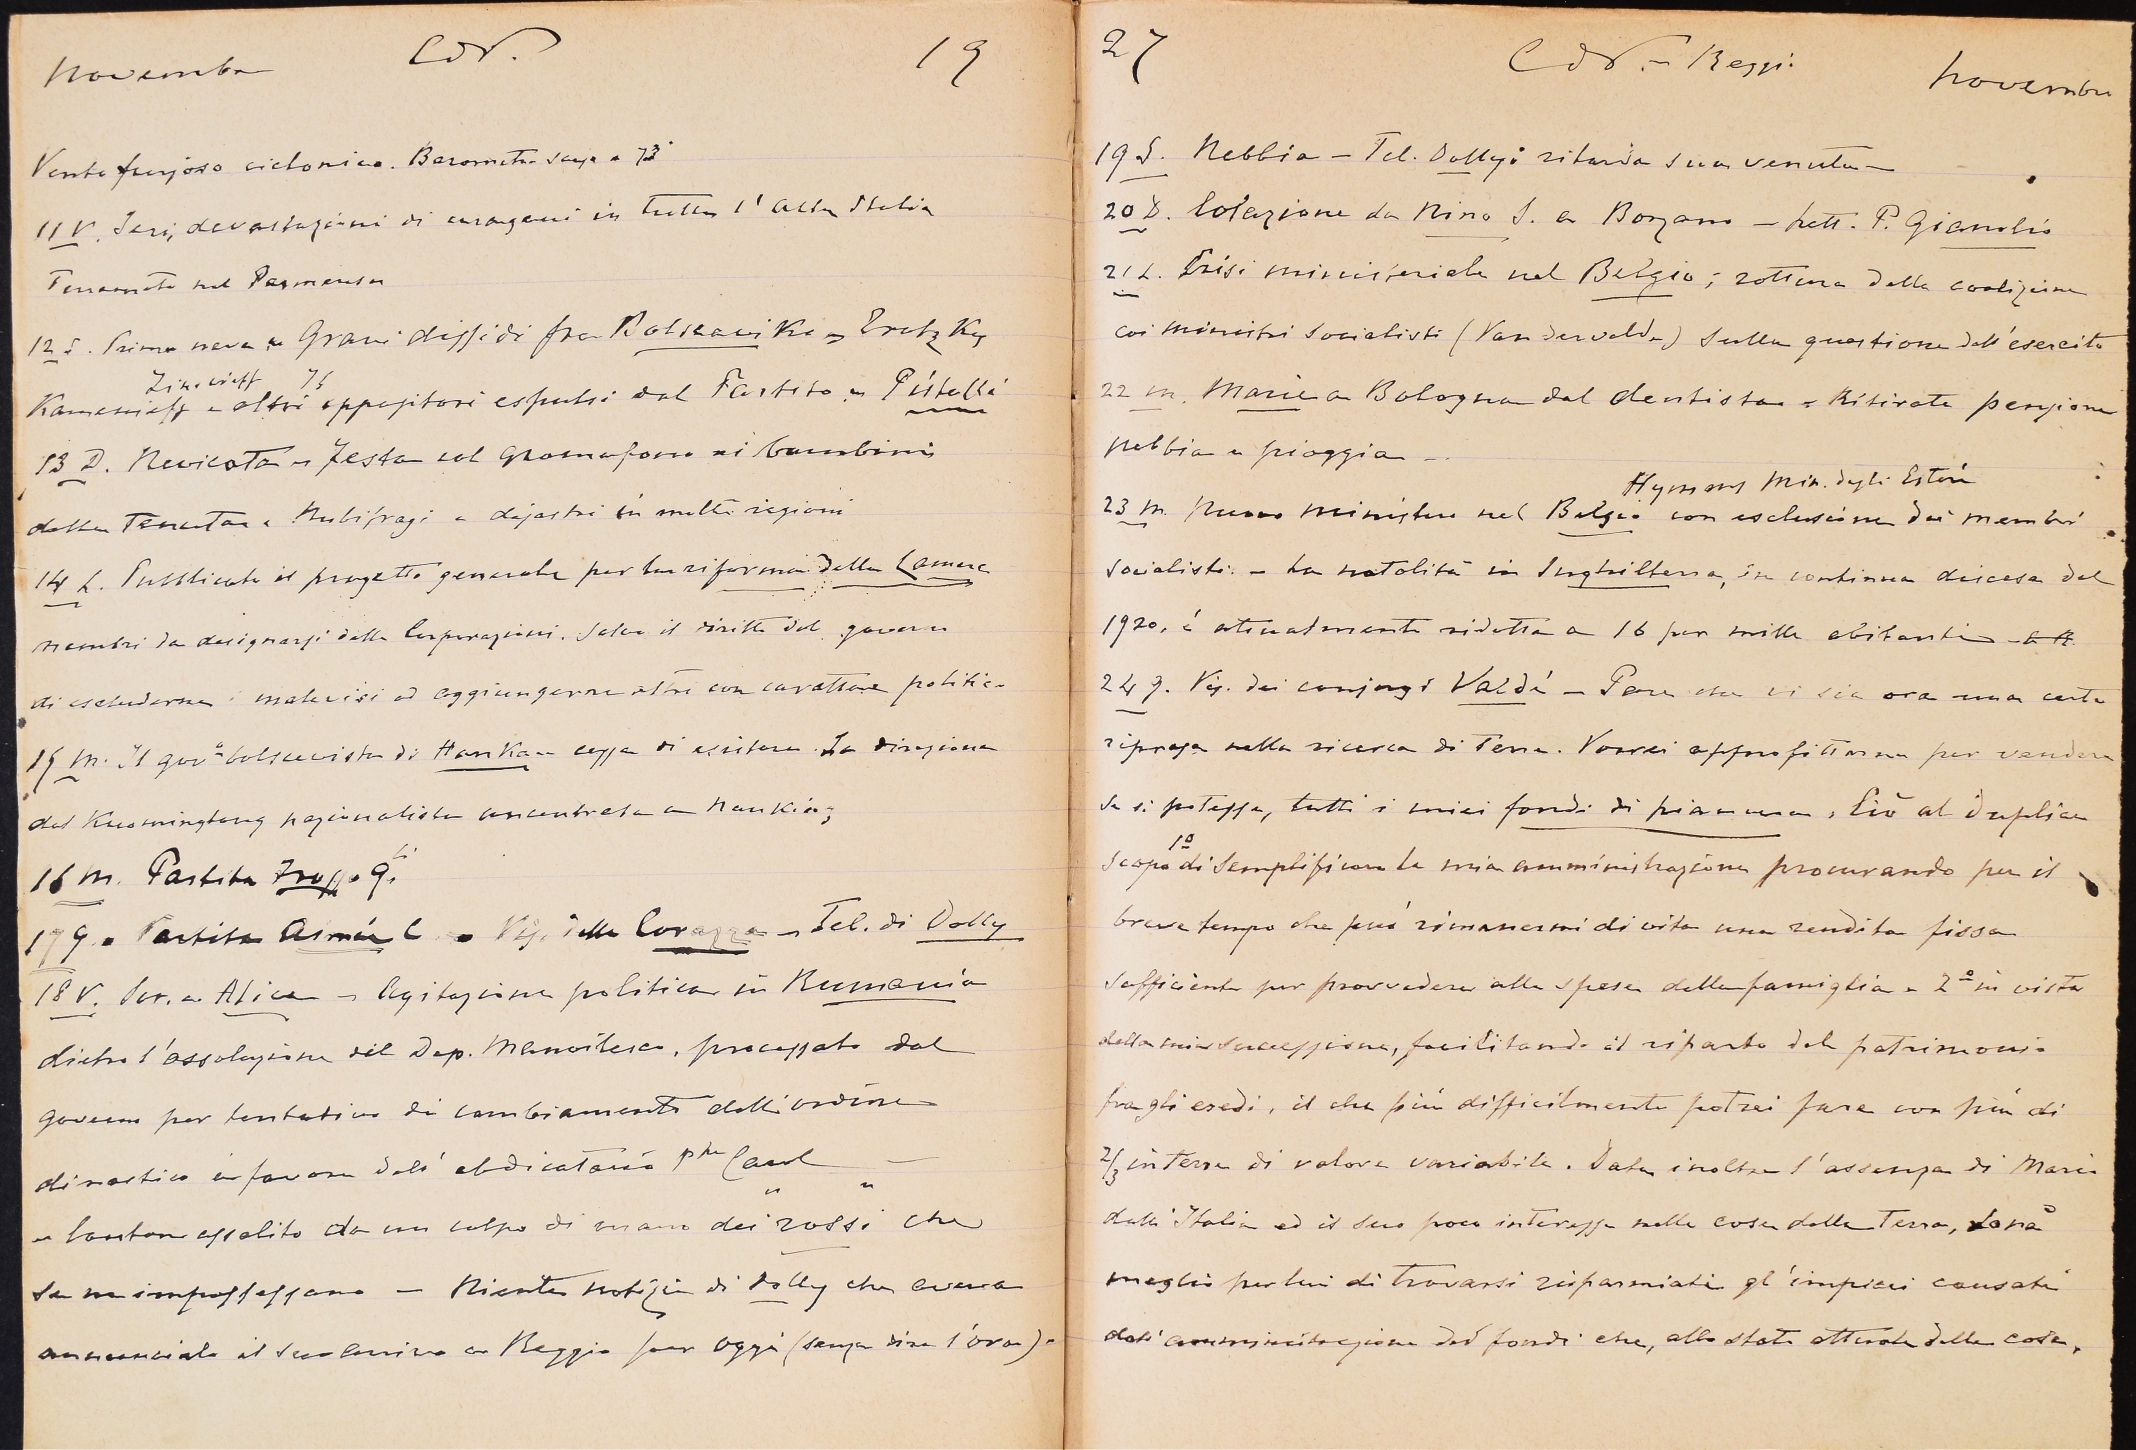 Novembre CdV. 19
Vento furioso ciclonico. Barometro scese a 73
11 V. Ieri, devastazioni di uragani in tutta l'alta Italia
Terremoto nel Parmense
12 S. Prima neve - Gravi dissidi fra Bolscevichi - Trotzky
Zinovieff 75
Kameneff e altri oppositori espulsi dal Partito -
13 D. Nevicata - Festa col gramofono ai bambini
della Tenuta - Nubifragi e disastri in molte regioni
14 L. Pubblicato il progetto generale per la riforma della Camera
membri da designarsi dalle Corporazioni. Salvo il diritto del governo
di escluderne i malevisi ed aggiungerne altri con carattere politico
15 M. Il gov° bolscevista di Hankau cessa di esistere. La direzione
del Kuomingtang nazionalista concentrata a Nanking
16 M. Partita
17 G. Partita - Vis. della Corazza - Tel. di Dolly
18 V. Scr. a Alice - Agitazione politica in Rumania
dietro l'assoluzione del Dep. Manoilesco, processato dal
governo per tentativo di cambiamento dell'ordine
dinastico in favore dell'abdicatario Ppe Carol
- Canton assalito da un colpo di mano dei rossi che
se ne impossessano - Niente notizie di Dolly che aveva
annunciato il suo arrivo a Reggio per oggi (senza dire l'ora) -
27 CdV. - Reggio Novembre
19 S. Nebbia - Tel. Dolly: ritarda sua venuta -
20 D. Colazione da Nino S. a Borzano - lett. P. Gianolio
21 L. Crisi ministeriale nel Belgio; rottura della coalizione
coi ministri socialisti (Vandervelde) sulla questione dell'esercito
22 M. Marie a Bologna dal dentista - Ritirata pensione
nebbia e pioggia -
Hymans Min. degli Esteri
23 M. Nuovo ministero nel Belgio con esclusione dei membri
socialisti - La natalità in Inghilterra, in continua discesa dal
1920, è attualmente ridotta a 16 per mille abitanti -
24 G. Vis. dei coniugi Valdé - Pare che vi sia ora una certa
ripresa nella ricerca di Terra. Vorrei approfittarne per vendere
se si potesse, tutti i miei fondi di pianura. Ciò al duplice
scopo 1° di semplificare la mia amministrazione procurando per il
breve tempo che può rimanermi di vita una rendita fissa
sufficiente per provvedere alle spese della famiglia - 2° in vista
della mia successione, facilitando il riparto del patrimonio
fra gli eredi, il che più difficilmente potrei fare con più di
2/3 in terra di valore variabile. Data inoltre l'assenza di Mario
dall'Italia ed il suo poco interesse nelle cose della Terra, sarà
meglio per lui di trovarsi risparmiati gl'impicci causati
dall'amministrazione dei fondi che, allo stato attuale delle cose,